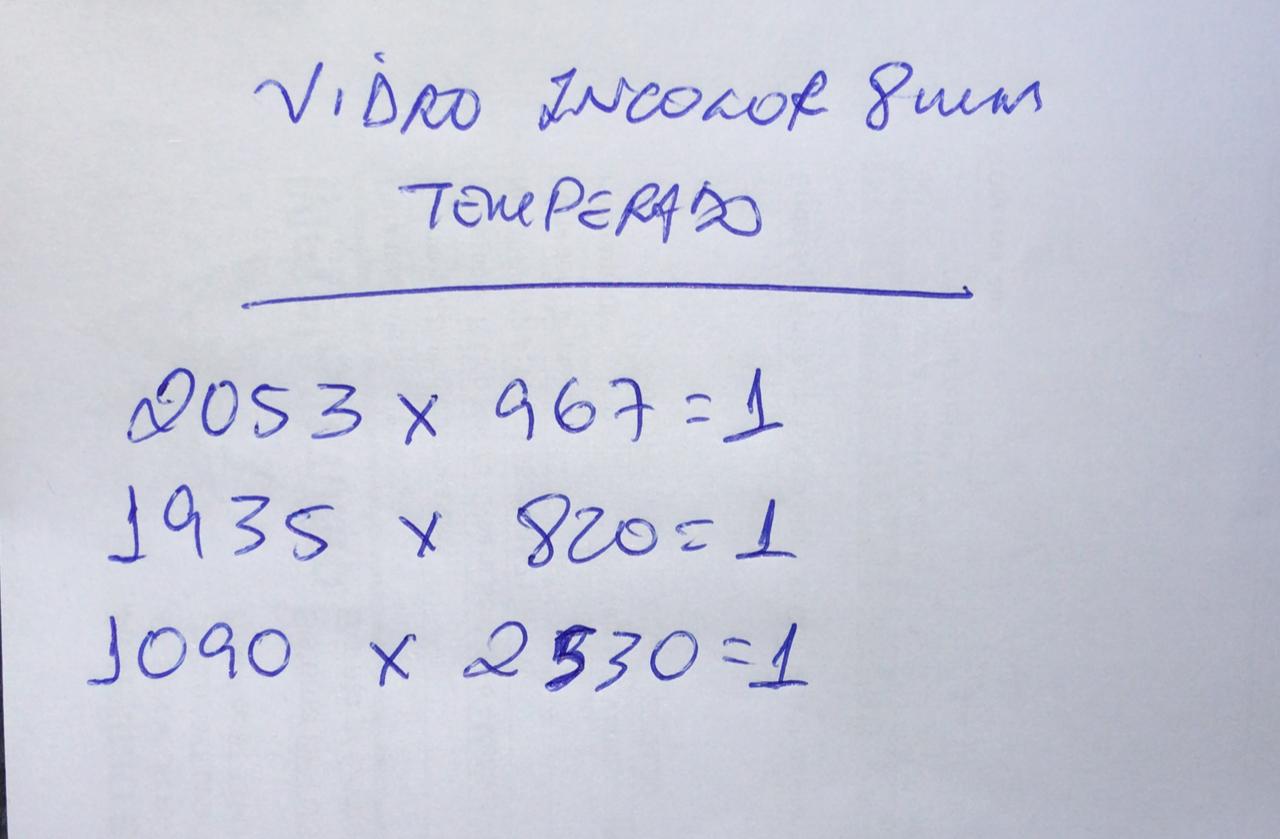 VIDRO INCOLOR 8mm
TEMPERADO
2053 x 967 = 1
1935 x 820 = 1
1090 x 2530 = 1